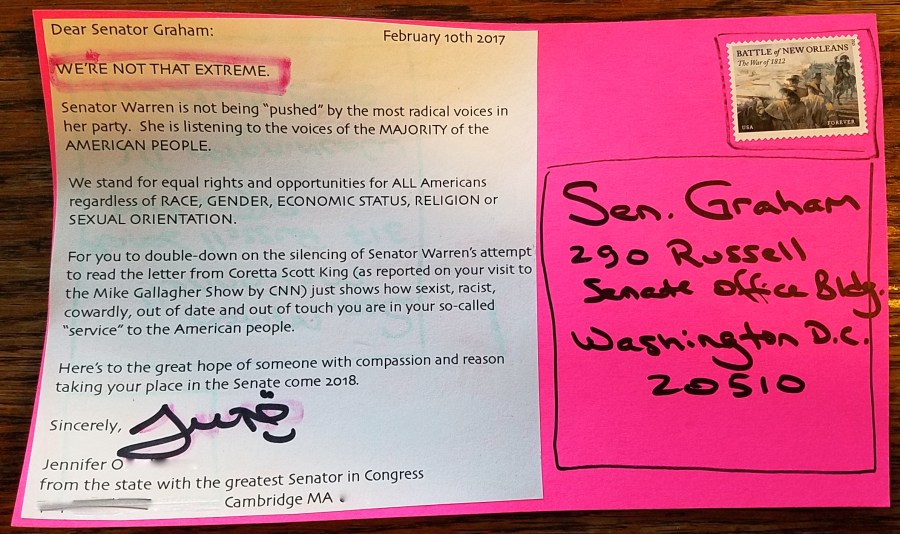 Dear Senator Graham:
February 10th 2017
WE'RE NOT THAT EXTREME.
Senator Warren is not being "pushed" by the most radical voices in
her party. She is listening to the voices of the MAJORITY of the
AMERICAN PEOPLE.
We stand for equal rights and opportunities for ALL Americans
regardless of RACE, GENDER, ECONOMIC STATUS, RELIGION or
SEXUAL ORIENTATION.
For you to double-down on the silencing of Senator Warren's attempt
to read the letter from Coretta Scott King (as reported on your visit to
the Mike Gallagher Show by CNN) just shows how sexist, racist,
cowardly, out of date and out of touch you are in your so-called
"service" to the American people.
Here's to the great hope of someone with compassion and reason
taking your place in the Senate come 2018.
Sincerely,
Jennifer O
from the state with the greatest Senator in Congress
Cambridge MA
BATTLE of NEW ORLEANS
The War of 1812
USA
FOREVER
Sen. Graham
290 Russell
Senate Office Bldg.
Washington D.C.
20510